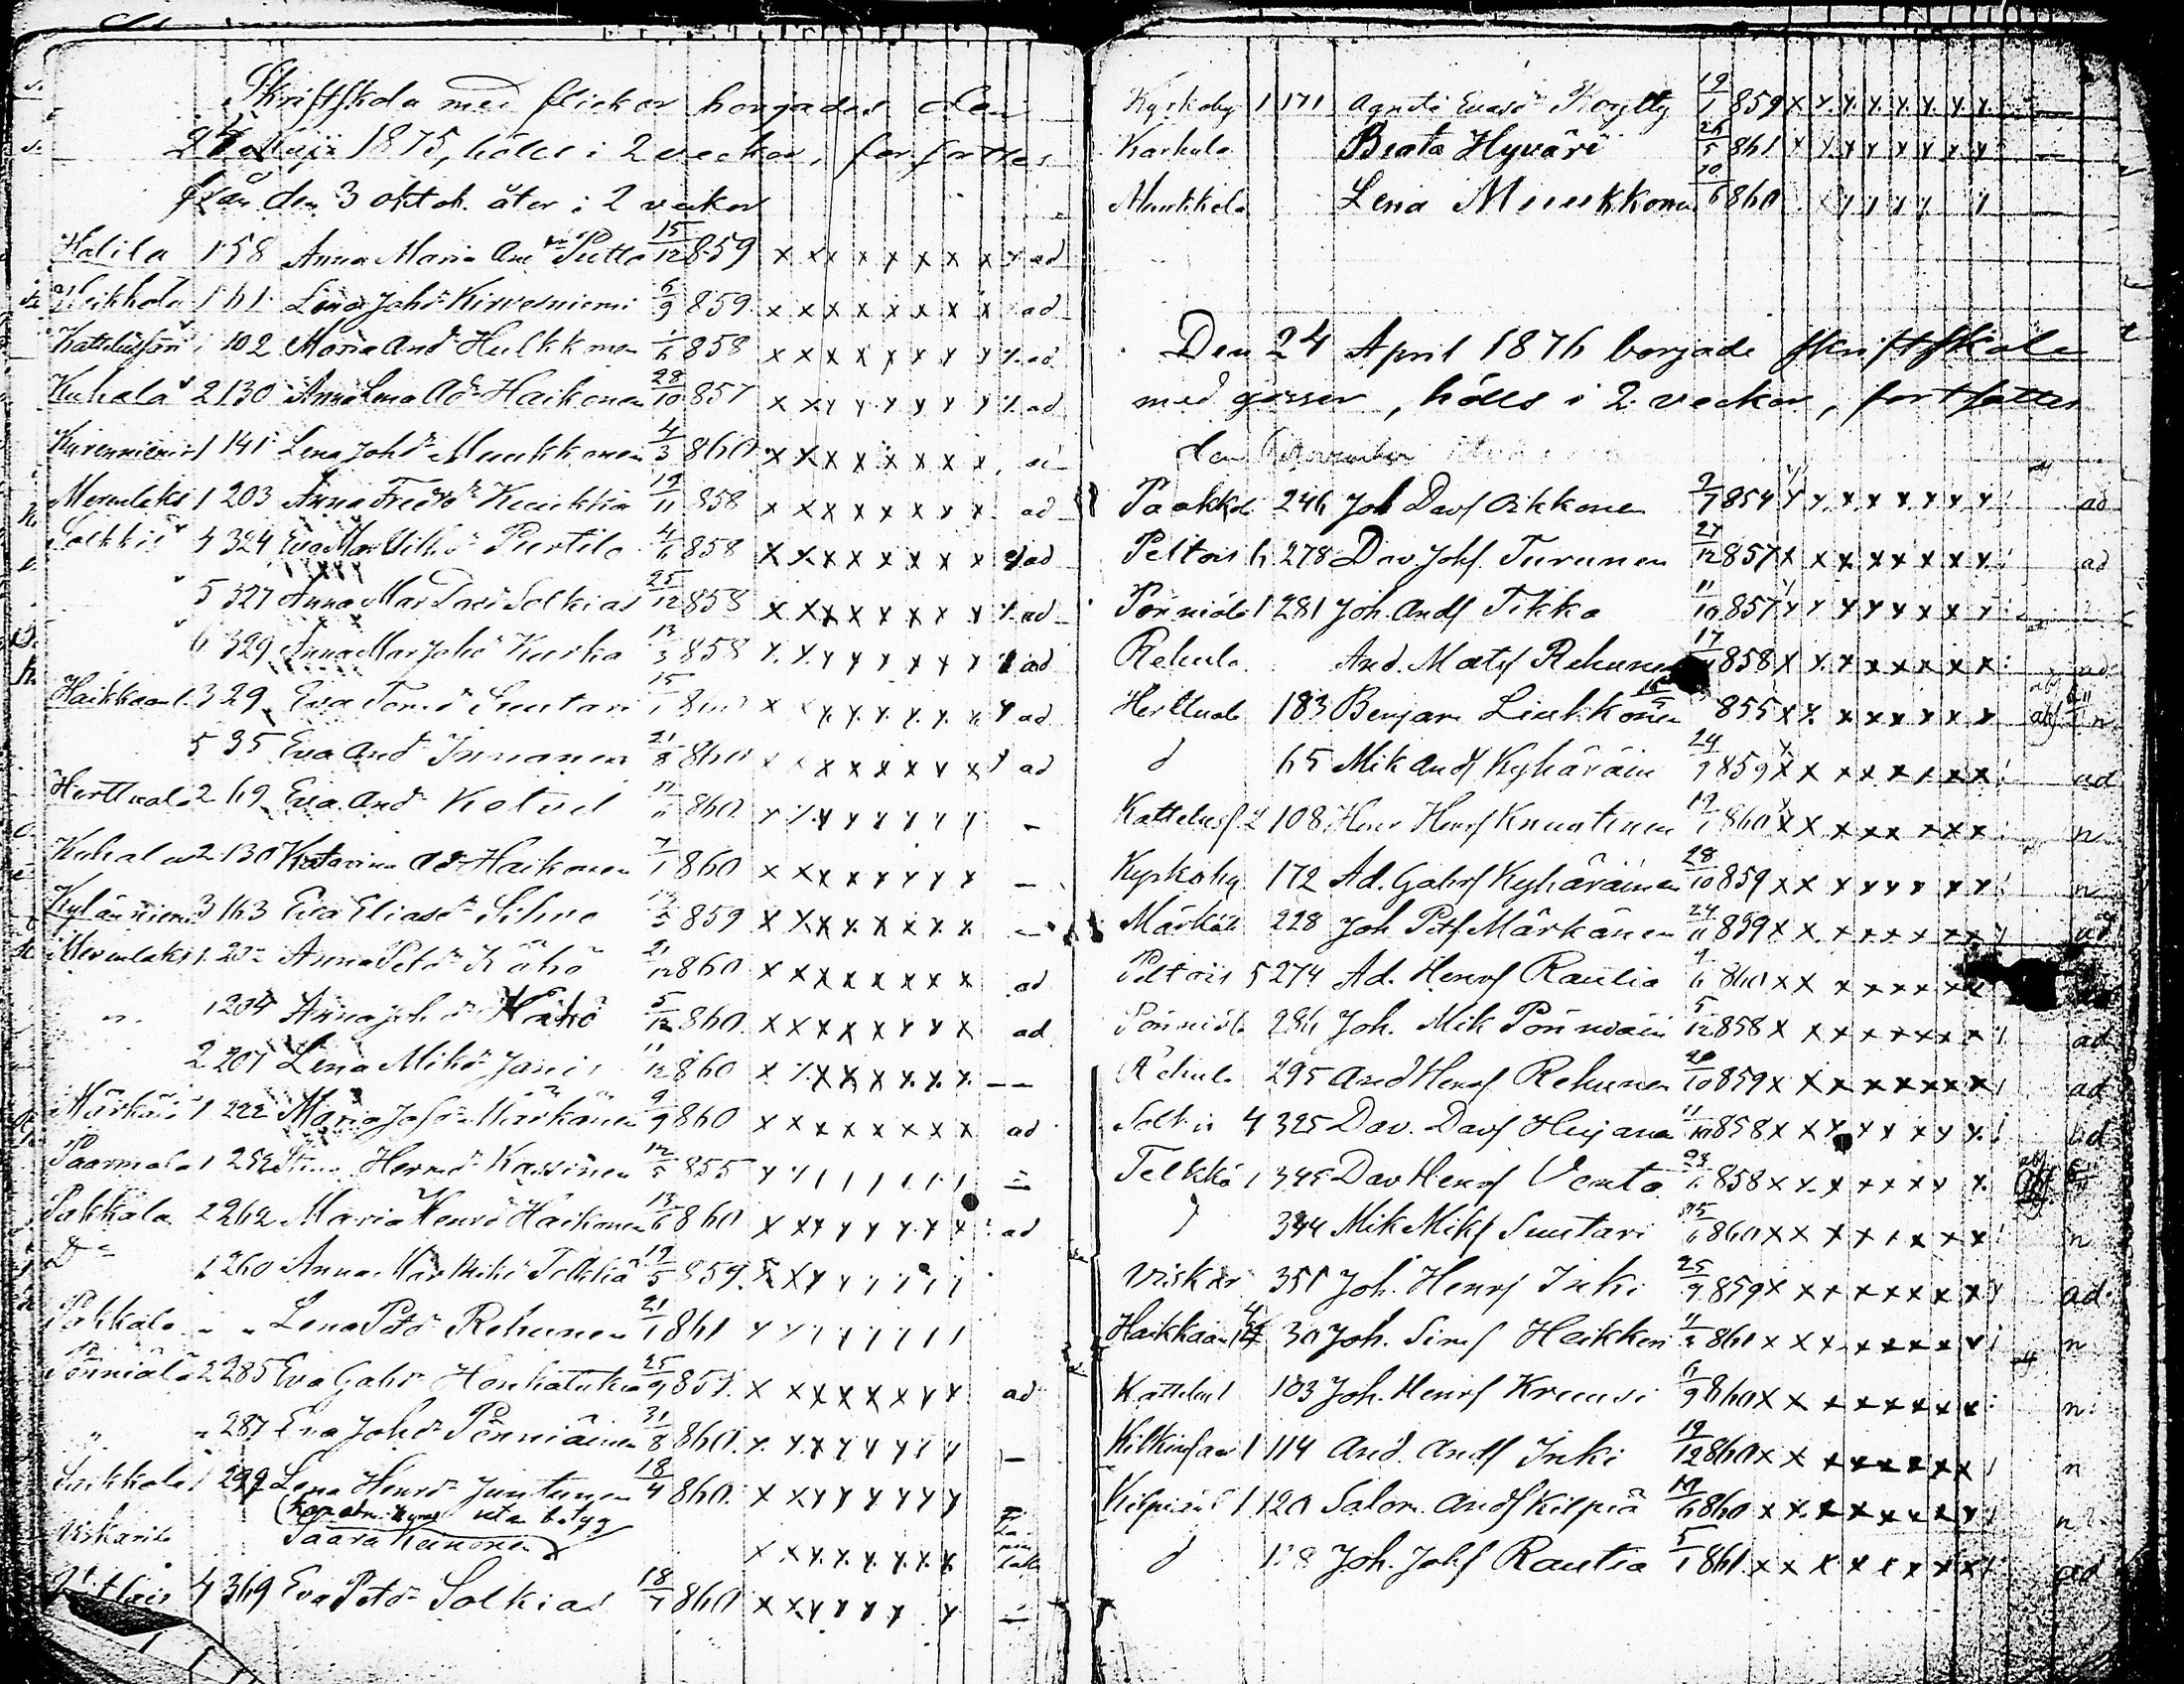 Skriftskola med flickor borjades den
24 Maji 1875, hölls i 2 veckor, fortsattes
från den 3 oktob. åter i 2 veckor
Halila 1 58 Anna Maria And dr Putto 15/12 859 x x x x x x x x ad
1 61 Lena Johdr Kirvesniemi 6/9 859 x x x x x x x x ad
102 Maria Anddr Hulkkonen 1/6 858 x x x x x x x x ad
Kuhala 2 130 Anna Lena Addr Haikonen 28/10 857 x x x x x x x x ad
Kurenniemi 1 141 Lena Johdr Muukkonen 4/3 860 x x x x x x x x
1 203 Anna Freddr Kuukkia 19/11 858 x x x x x x x x ad
Solkkis 4 324 Eva Mar Vilhdr Purtilo 4/6 858 x x x x x x x x ad
5 327 Anna Mar Davdr Solkias 25/12 858 x x x x x x x x ad
6 329 Anna Mar Johdr Kurka 13/3 858 x x x x x x x x ad
Haikkaanl. 3 29 Eva Tomdr Suutari 15/1 x x x x x x x x ad
5 35 Eva Anddr Innanen 21/8 860 x x x x x x x x ad
Herttuala 2 69 Eva Anddr Kotvel 860 x x x x x x x x –
Kuhala 2 130 Katarina Addr Haikonen 7/1 860 x x x x x x x x –
Kylänniemi 3 163 Eva Eliasdr Sihvo 859 x x x x x x x x –
1 Anna Petdr Kähö 21/12 860 x x x x x x x x ad
" 1 204 Anna Johdr Kähö 5/12 860 x x x x x x x x ad
2 207 Lena Mikdr Janis 11/12 860 x x x x x x x x – –
Märkälä 1 222 Maria Johdr Märkänen 9/9 860 x x x x x x x x ad
Paarmala 1 252 Herndr Kassinen 12/5 855 x x
Pakkala 2 262 Maria Henrdr Haikonen 13/6 860 x x x x x x x x ad
Do 1 260 Anna Mar Mikdr Tolkkiä 19/5 859 x x x x
Pakkala " " Lena Petdr Rehunen 21/1 861 x x
Pönniälä 2 285 Eva Gabdr Honkatukia 25/9 857 x x x x x x x x ad
" " 287 Eva Johdr Pönniäinen 31/8 860 x x x x x x x x –
1 299 Lena Henrdr Juntunen 18/4 860 x x x x x x x x
utan betyg
Viskarila Saara Keinonen x x x x x x x x
4 369 Eva Petdr Solkias 18/7 860 x x x x x x x –
Kyrkoby 1 171 Agneta Evasdr 19/1 859 x x x x x x x x –
Karhula Beata Hyväri 26/5 861 x x x x x x x x –
Muukkola Lena Muukkonen 20/6 860 x x x x x x –
Den 24 April 1876 borjade skriftskola
med gossar, hölls i 2 veckor, fortsattes
den November
Paakkola 246 Joh Davs Oikkonen 9/7 854 x x x x x x x x ad
Peltois 6 278 Dav Johs Turunen 27/12 857 x x x x x x x x ad
Pönniälä 1 281 Joh. Ands Tikka 11/10 857 x x x x x x x x
Rehula And. Mats Rehunen 17 858 x x x x x x x x ad
Herttuala 183 Benjam Liukkonen 855 x x x x x x x x
d 65 Mik Ands Kyhäräin 24/9 859 x x x x x x x x ad
2 108 Henr Henrs Knuutinen 19/1 860 x x x x x x x x n
Kyrkoby 172 Ad. Gabrs Kyhäräinen 28/10 859 x x x x x x x x n
Märkälä 228 Joh Pets Märkänen 24/11 859 x x x x x x x x ad
Peltois 5 274 Ad. Henrs Rautia 860 x x x x x x x x
Pönniälä 286 Joh. Mik Pönniäin 5/12 858 x x x x x x x x ad
Rehula 295 And Henrs Rehunen 20/10 859 x x x x x x x x ad
Solkis 4 325 Dav. Davs Hujanen 11/10 858 x x x x x x x x ad
Telkkä 1 345 Dav Henrs Vento 858 x x x x x x x x
d 344 Mik Miks Suutari 860 x x x x x x x x n
Viskar 351 Joh. Henrs Inki 25/9 859 x x x x x x x x ad
Haikkaan 30 Joh. Sims Heikkon 861 x x x x x x x x n
103 Joh. Henrs Kruusi 6/9 860 x x x x x x x x n
1 114 And. Ands Inki 19/12 860 x x x x x x x x n
1 120 Salom. Ands Kilpiä 860 x x x x x x x x n
d Joh. Johs Rautia 5/1 861 x x x x x x x x ad